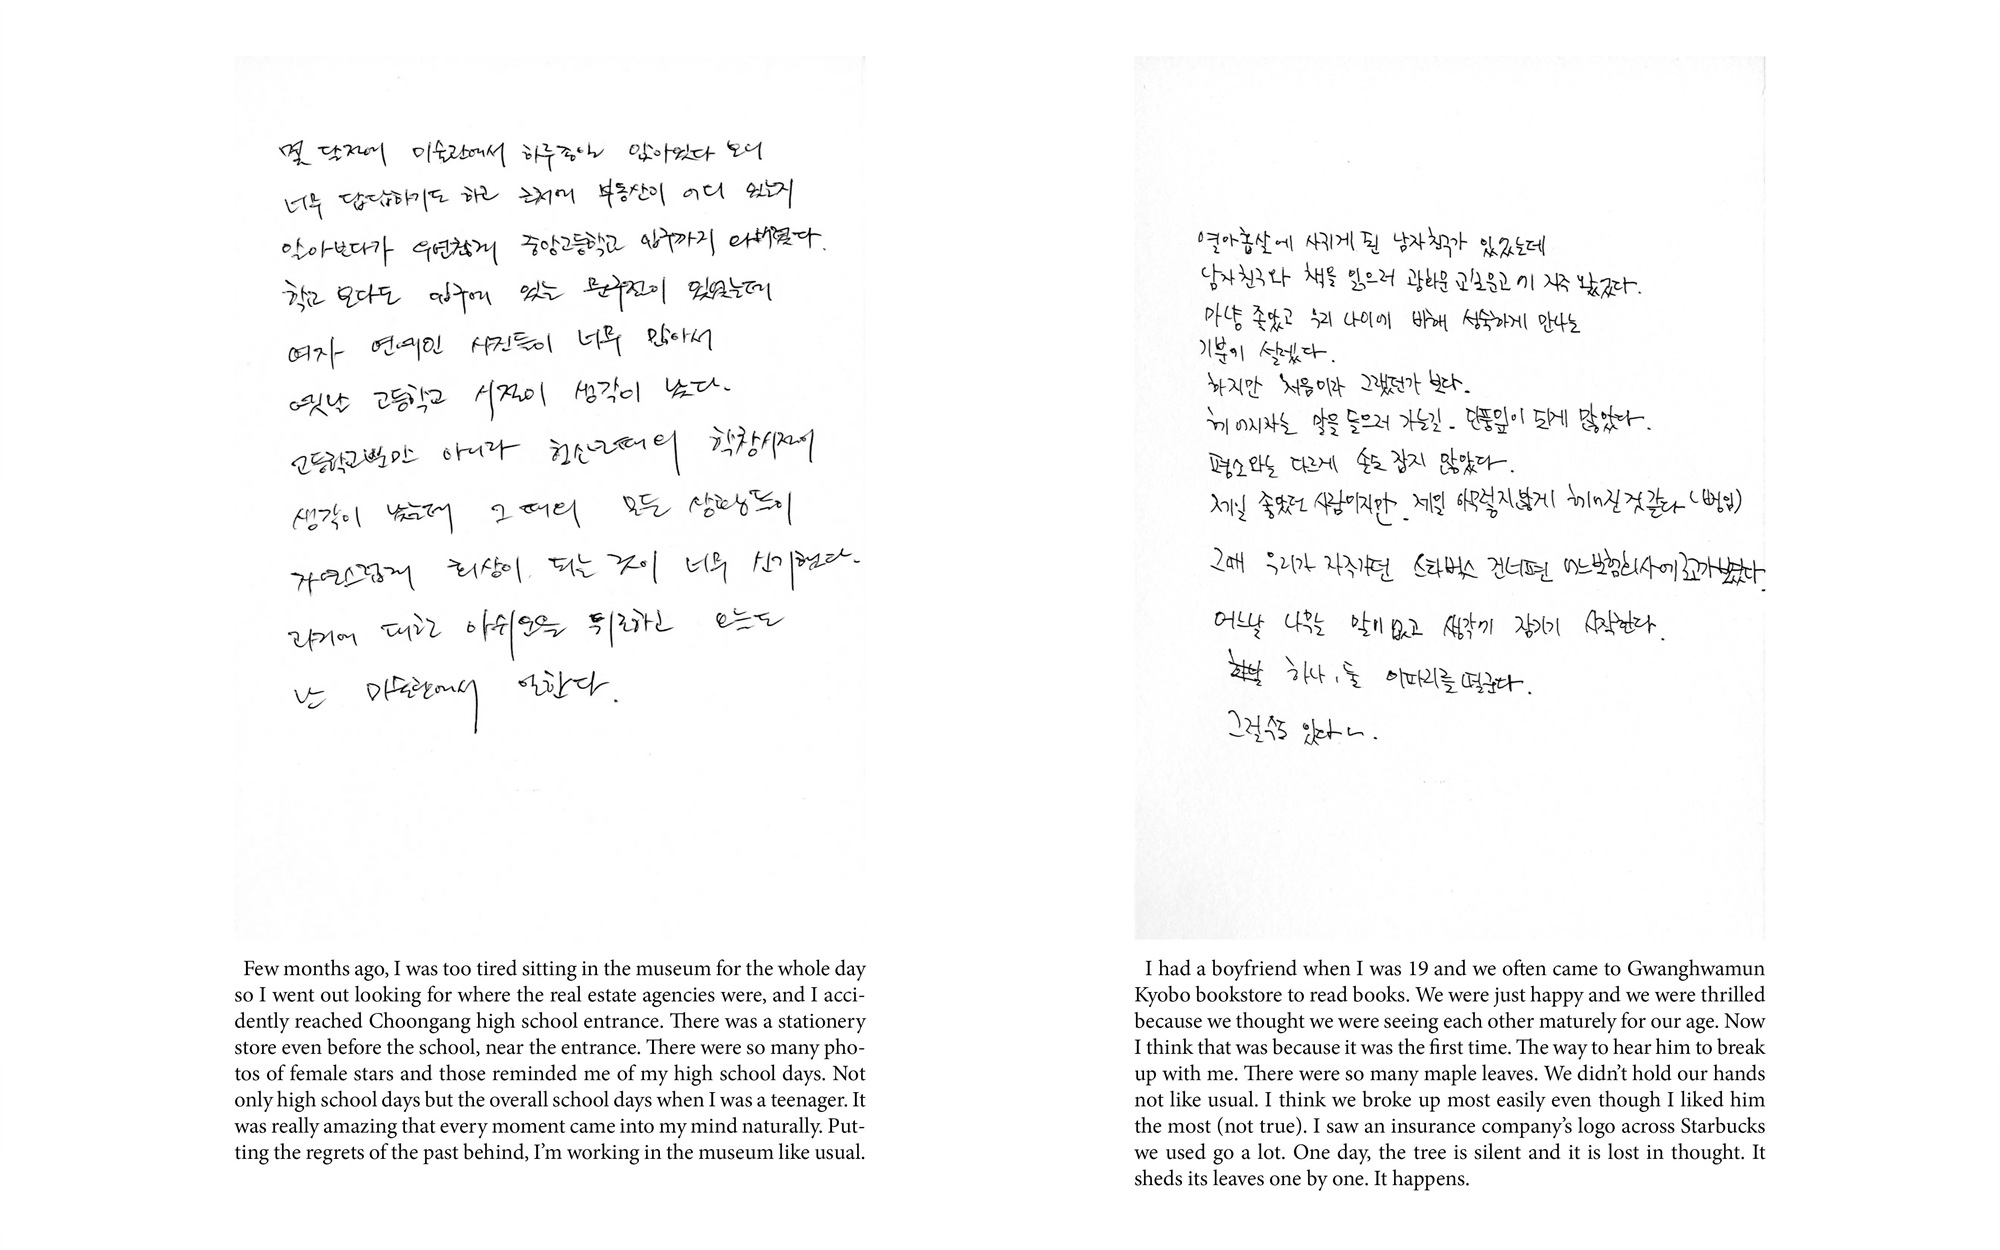 몇 달전에 미술관에서 하루종일 앉아있다 보니
너무 답답하기도 하고 근처에 부동산이 어디 있는지
알아보다가 우연찮게 중앙고등학교 입구까지
학교 보다도 입구에 있는 문구점이 있었는데
여자 연예인 사진들이 너무 많아서
옛날 고등학교 시절이 생각이 났다.
고등학교뿐만 아니라 학창시절이
생각이 났는데 그 때의 모든 상황들이
자연스럽게 회상이 되는 것이 너무 신기했다.
과거에 대한 아쉬움을 뒤로하고 오늘도
난 미술관에서 일한다.
Few months ago, I was too tired sitting in the museum for the whole day
so I went out looking for where the real estate agencies were, and I acci-
dently reached Choongang high school entrance. There was a stationery
store even before the school, near the entrance. There were so many pho-
tos of female stars and those reminded me of my high school days. Not
only high school days but the overall school days when I was a teenager. It
was really amazing that every moment came into my mind naturally. Put-
ting the regrets of the past behind, I'm working in the museum like usual.
열아홉살에 사귀게 된 남자친구가 있었는데
남자친구와 책을 읽으러 광화문 교보문고에 자주 왔었다.
마냥 좋았고 우리 나이에 비해 성숙하게 만나는
기분이 설렜다.
하지만 처음이라 그랬던가 보다.
헤어지자는 말을 들으러 가는길. 단풍잎이 되게 많았다.
평소와는 다르게 손도 잡지 않았다.
제일 좋았던 사람이지만. 제일 아무렇지않게 헤어진것 같다 (뻥임)
그때 우리가 자주가던 스타벅스 건너편 어느보험회사에 로고가보였다.
어느날 나무는 말이 없고 생각에 잠기기 시작한다.
하나, 둘 이파리를 떨군다.
그럴수도 있다~.
I had a boyfriend when I was 19 and we often came to Gwanghwamun
Kyobo bookstore to read books. We were just happy and we were thrilled
because we thought we were seeing each other maturely for our age. Now
I think that was because it was the first time. The way to hear him to break
up with me. There were so many maple leaves. We didn't hold our hands
not like usual. I think we broke up most easily even though I liked him
the most (not true). I saw an insurance company's logo across Starbucks
we used go a lot. One day, the tree is silent and it is lost in thought. It
sheds its leaves one by one. It happens.